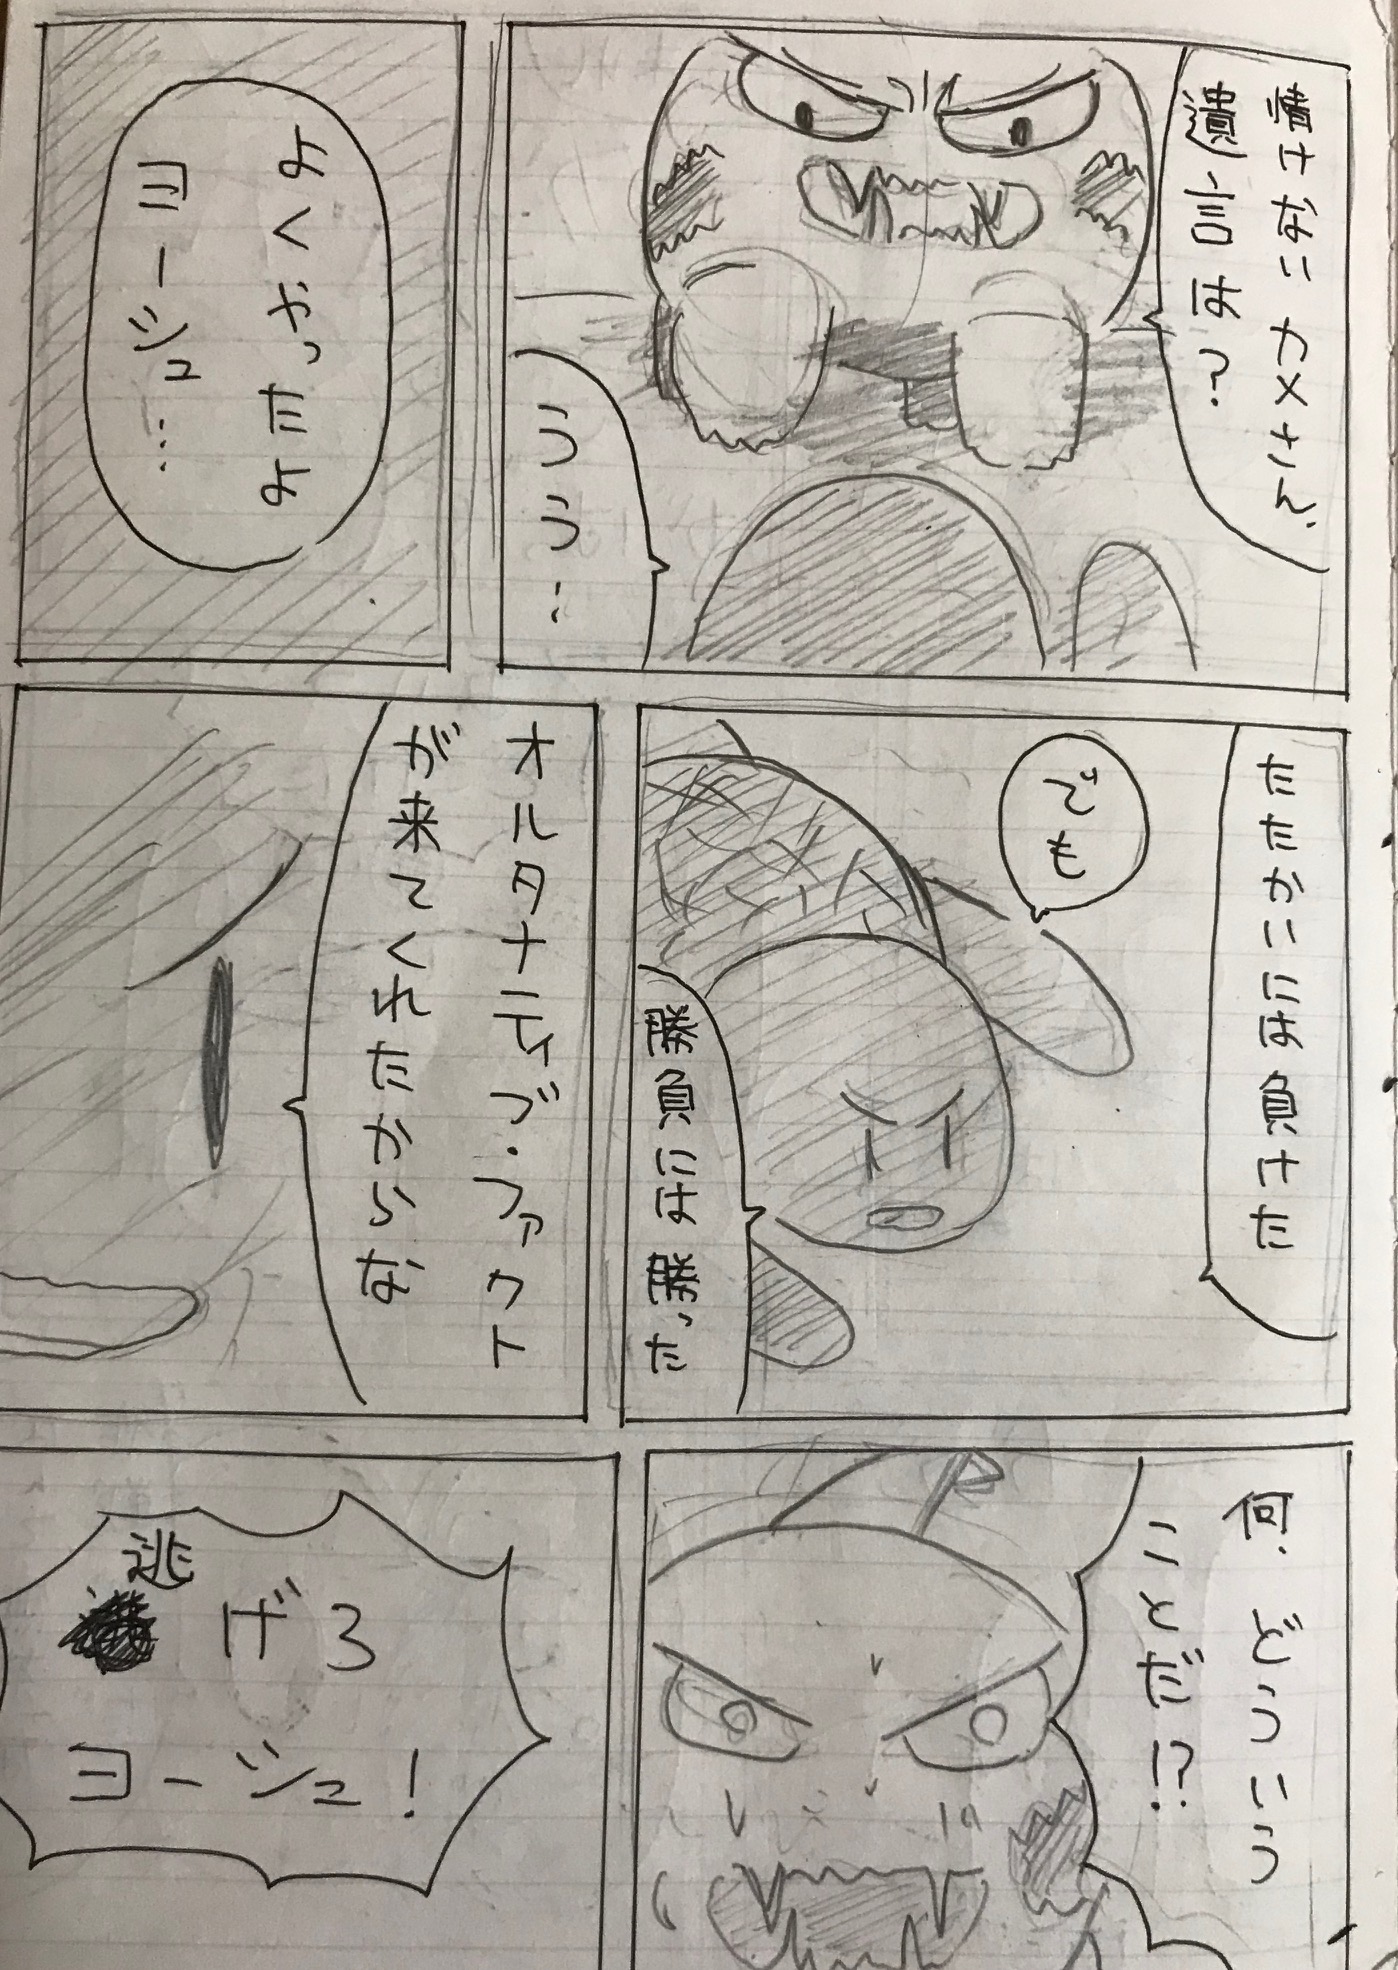 情けないカメさん、
遺言は？
うう…
よくやったよ
ヨーシュ…
たたかいには負けた
でも
勝負には勝った
オルタナティブ・ファクト
が来てくれたからな
何、どういう
ことだ!?
逃げろ
ヨーシュ！